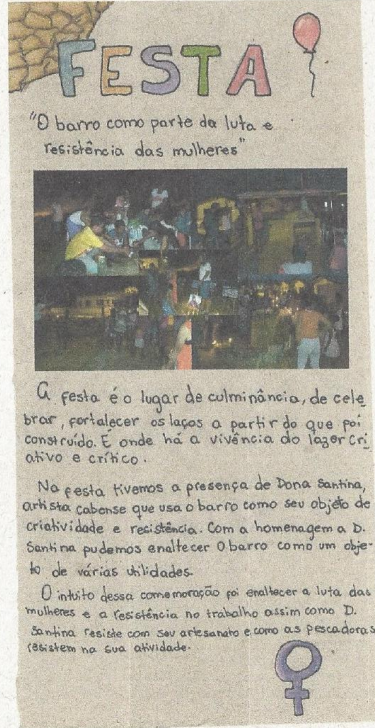 FESTA
"O barro como parte da luta e
resistência das mulheres"
A festa é o lugar de culminância, de cele
brar, fortalecer os laços a partir do que foi
construído. É onde há a vivência do lazer cri
ativo e crítico.
Na festa tivemos a presença de Dona Santina,
artista cabense que usa o barro como seu objeto de
criatividade e resistência. Com a homenagem a D.
Santina pudemos enaltecer o barro como um obje-
to de várias utilidades.
O intuito dessa comemoração foi enaltecer a luta das
mulheres e a resistência no trabalho assim como D.
Santina resiste com seu artesanato e como as pescadoras
resistem na sua atividade.